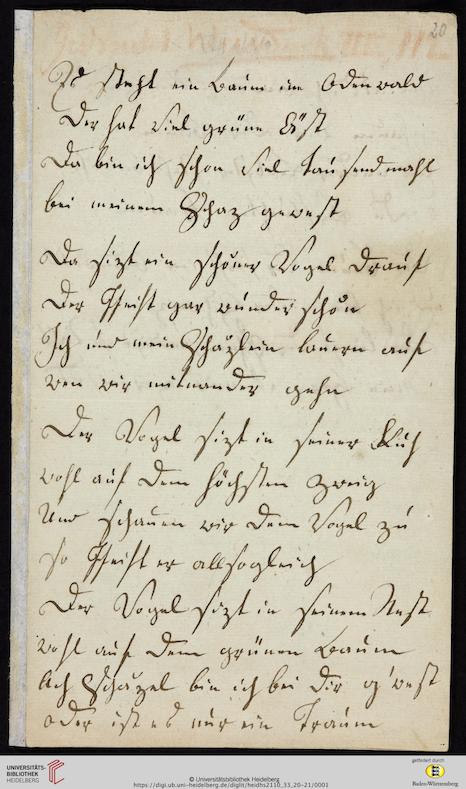 20
Es steht ein Baum im Odenwald
Der hat viel grüne Äst
Da bin ich schon viel tausendmahl
bei meinem Schaz gewest
Da sizt ein schöner Vogel drauf
Der Pfeift gar wunderschön
Ich und mein Schäzlein lauern auf
wen wir mitnander gehn
Der Vogel sizt in seiner Ruh
wohl auf dem höchsten Zweig
Und schauen wir dem Vogel zu
so Pfeift er allsogleich
Der Vogel sizt in seinem Nest
wohl auf dem grünen Baum
Ach Schäzel bin ich bei dir g'west
oder ist es nur ein Traum
UNIVERSITÄTS-
BIBLIOTHEK
HEIDELBERG
© Universitätsbibliothek Heidelberg
https://digi.ub.uni-heidelberg.de/diglit/heidhs2110_33_20-21/0001
gefördert durch
Baden-Württemberg